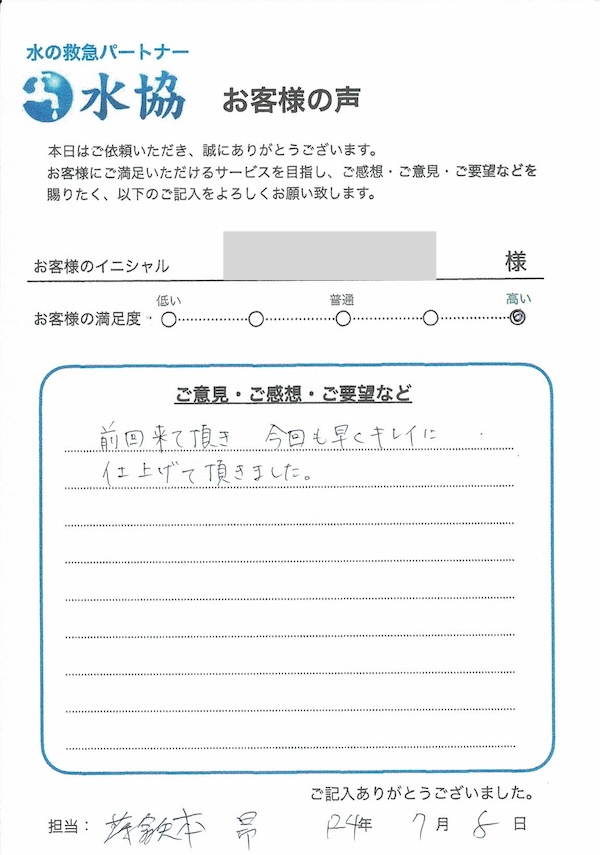 水の救急パートナー
水協 お客様の声
本日はご依頼いただき、誠にありがとうございます。
お客様にご満足いただけるサービスを目指し、ご感想・ご意見・ご要望などを
賜りたく、以下のご記入をよろしくお願い致します。
お客様のイニシャル 様
低い 普通 高い
お客様の満足度
ご意見・ご感想・ご要望など
前回来て頂き 今回も早くキレイに
仕上げて頂きました。
ご記入ありがとうございました。
担当: 本 昂 R4年 7月 8日